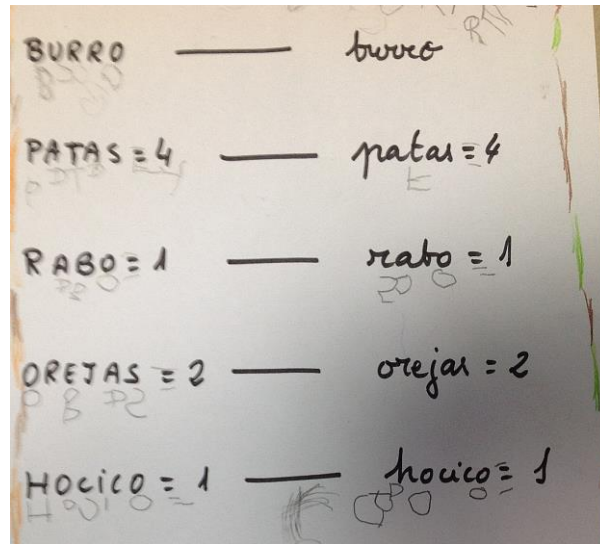 BURRO — burro
PATAS = 4 — patas = 4
RABO = 1 — rabo = 1
OREJAS = 2 — orejas = 2
HOCICO = 1 — hocico = 1